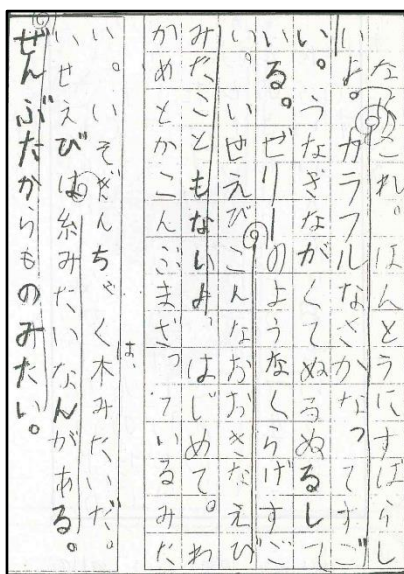 なにこれ。ほんとうにすばらし
いよ。カラフルなさかなってすご
い。うなぎながくてぬるぬるして
いる。ゼリーのようなくらげすご
い。いせえびこんなおおきなえび
みたこともないよ。はじめて。わ
かめとかこんぶまざっているみた
い。いそぎんちゃく木みたいだ。
は、
いせえびは糸みたいなんがある。
ぜんぶたからものみたい。